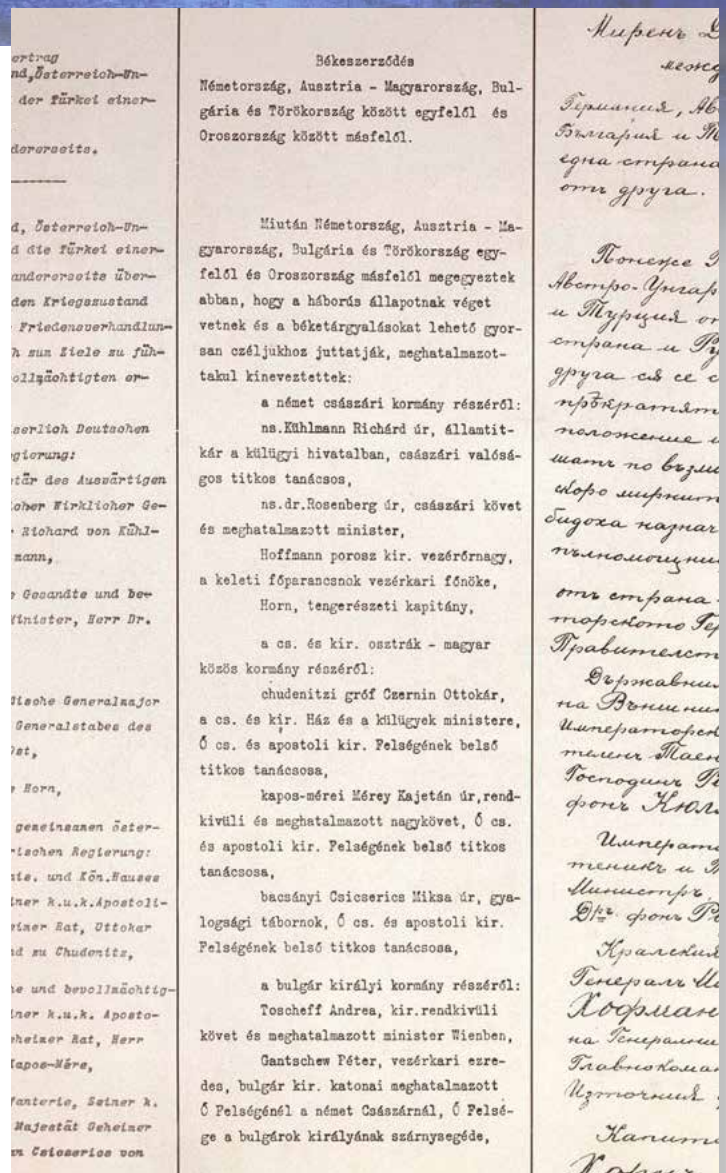 ertrag
nd,Österreich-Un-
der Türkei einer-
dererseits.
d, Österreich-Un-
d die Türkei einer-
andererseits über-
den Kriegszustand
Friedensverhandlun-
h zum Ziele zu füh-
ollmächtigten er-
serlich Deutschen
gierung:
tär des Auswärtigen
icher Wirklicher Ge-
Richard von Kühl-
mann,
Gesandte und be-
inister, Herr Dr.
ische Generalmajor
Generalstabes des
Ost,
Horn,
gemeinsamen öster-
rischen Regierung:
is. und Kön.Hauses
iner k.u.k.Apostoli-
eimer Rat, Ottokar
d zu Chudenitz,
he und bevollmächtig-
iner k.u.k. Aposto-
heimer Rat, Herr
Kapos-Mére,
fanterie, Seiner k.
Majestät Geheimer
n Csicserics von
Békeszerződés
Németország, Ausztria - Magyarország, Bul-
gária és Törökország között egyfelől és
Oroszország között másfelől.
Miután Németország, Ausztria - Ma-
gyarország, Bulgária és Törökország egy-
felől és Oroszország másfelől megegyeztek
abban, hogy a háborús állapotnak véget
vetnek és a béketárgyalásokat lehető gyor-
san czéljukhoz juttatják, meghatalmazot-
takul kineveztettek:
a német császári kormány részéről:
ns.Kühlmann Richárd úr, államtit-
kár a külügyi hivatalban, császári valósá-
gos titkos tanácsos,
ns.dr.Rosenberg úr, császári követ
és meghatalmazott minister,
Hoffmann porosz kir. vezérőrnagy,
a keleti főparancsnok vezérkari főnöke,
Horn, tengerészeti kapitány,
a cs. és kir. osztrák - magyar
közös kormány részéről:
chudenitzi gróf Czernin Ottokár,
a cs. és kir. Ház és a külügyek ministere,
Ő cs. és apostoli kir. Felségének belső
titkos tanácsosa,
kapos-mérei Mérey Kajetán úr,rend-
kivüli és meghatalmazott nagykövet, Ő cs.
és apostoli kir. Felségének belső titkos
tanácsosa,
bacsányi Csicserics Miksa úr, gya-
logsági tábornok, Ő cs. és apostoli kir.
Felségének belső titkos tanácsosa,
a bulgár királyi kormány részéről:
Toscheff Andrea, kir.rendkivüli
követ és meghatalmazott minister Wienben,
Gantschew Péter, vezérkari ezre-
des, bulgár kir. katonai meghatalmazott
Ő Felségénél a német Császárnál, Ő Felsé-
ge a bulgárok királyának szárnysegéde,
Миренъ
между
Германия, Ав
България и
една страна
отъ друга.
Понеже
Австро-Унгар
и Турция от
страна и Ру
друга ся се с
прѣкратят
положение и
шатъ по възм
скоро мирнит
бидоха назнач
пълномощни
отъ страна
торското Гер
Правителст
Държавни
на Външни
Императорск
теленъ Таен
Господинъ
фонъ Кюл
Императ
теникъ и
Министръ,
Дръ фонъ
Кралския
Генералъ
Хофман
на Генерални
Главнокоман
Източния
Капит